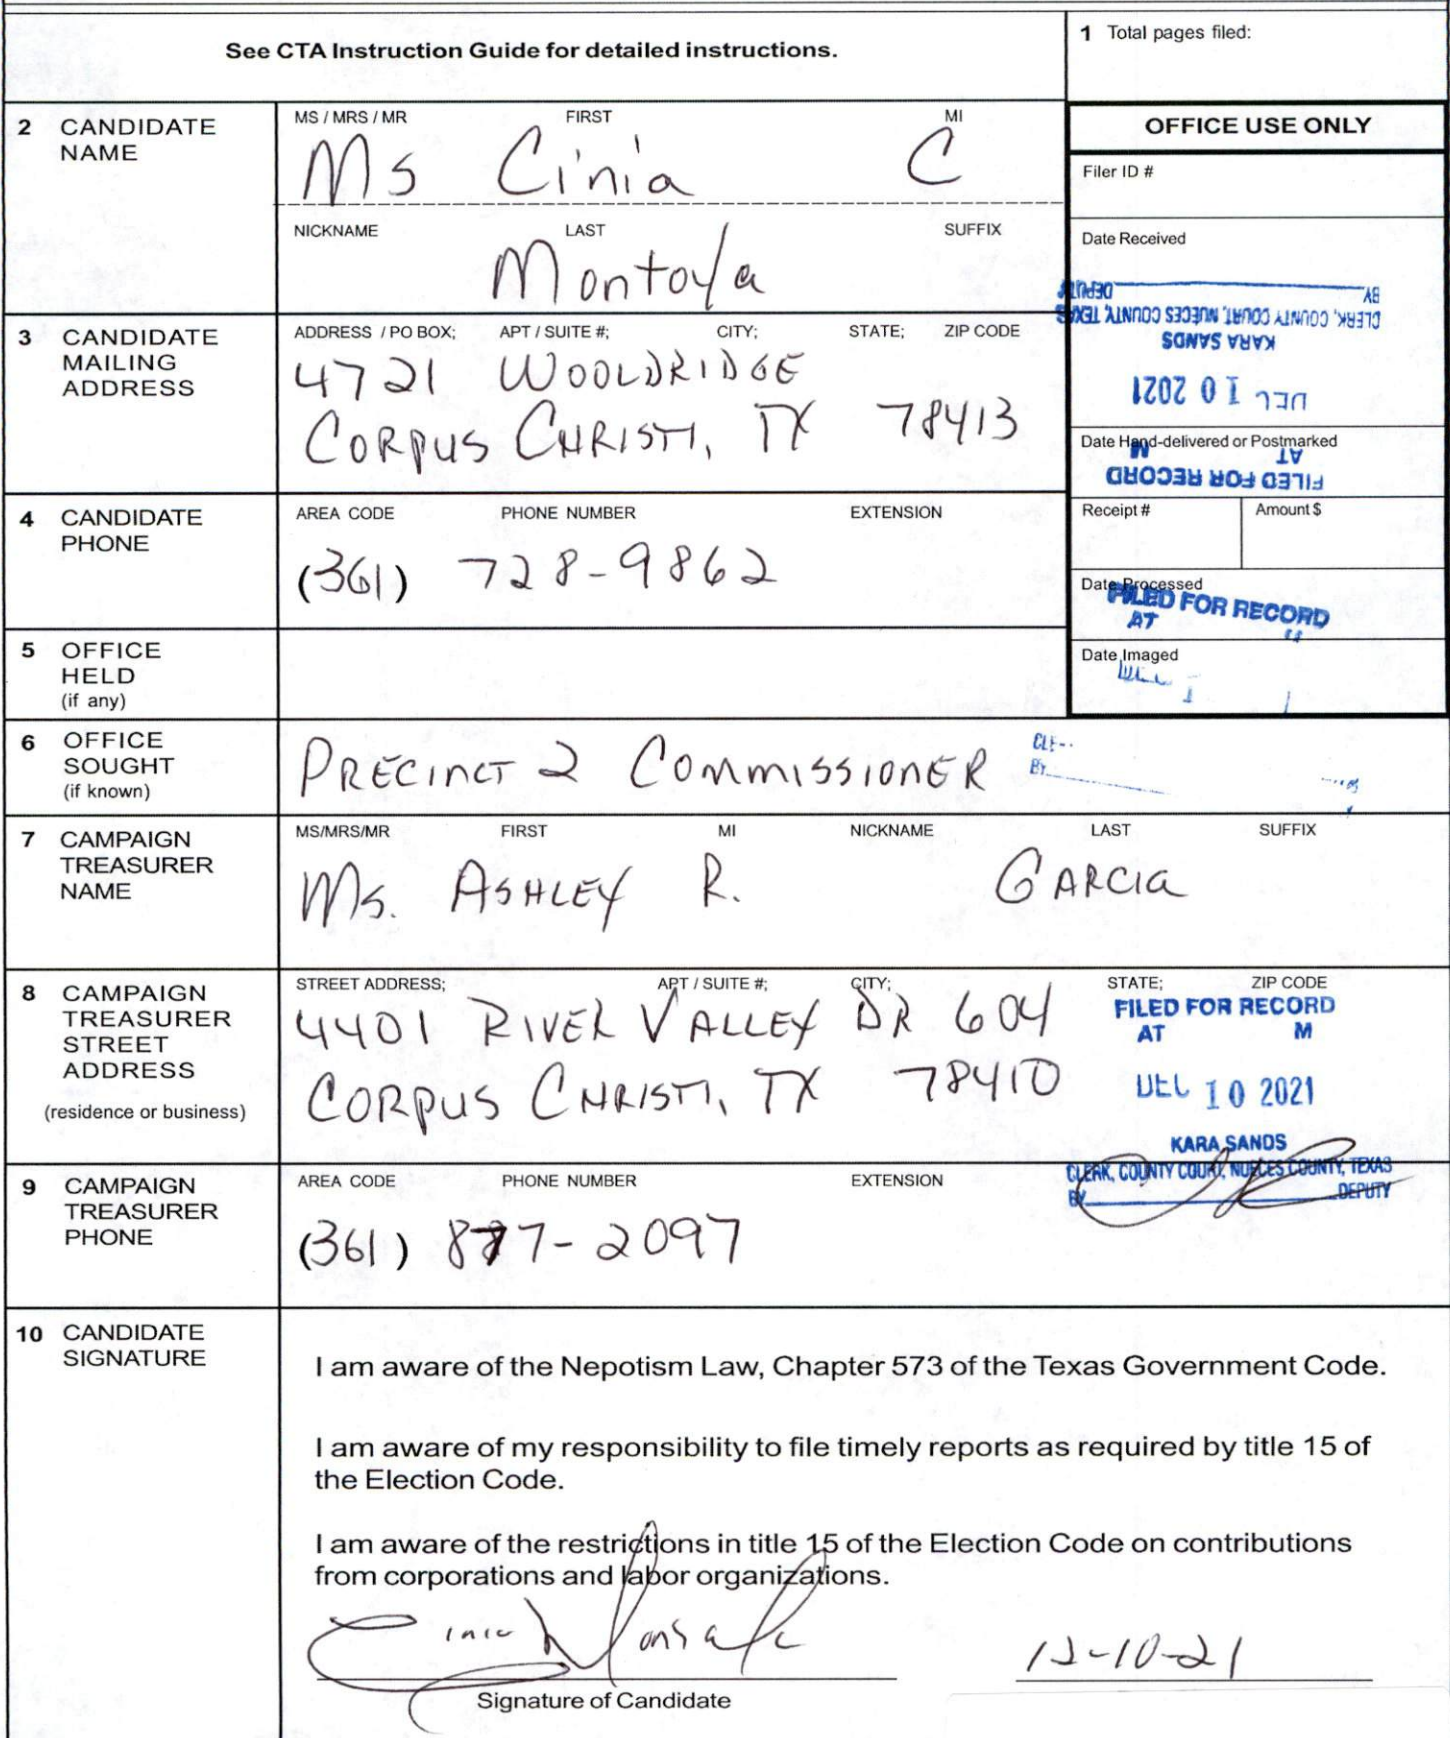 See CTA Instruction Guide for detailed instructions.
1 Total pages filed:
2 CANDIDATE NAME
MS / MRS / MR FIRST MI
Ms Cinia C
NICKNAME LAST SUFFIX
Montoya
OFFICE USE ONLY
Filer ID #
Date Received
BY DEPUTY
CLERK, COUNTY COURT, NUECES COUNTY, TEXAS
KARA SANDS
DEC 10 2021
Date Hand-delivered or Postmarked
AT M
FILED FOR RECORD
Receipt # Amount $
Date Processed
FILED FOR RECORD
AT
Date Imaged
3 CANDIDATE MAILING ADDRESS
ADDRESS / PO BOX; APT / SUITE #; CITY; STATE; ZIP CODE
4721 WOOLDRIDGE
CORPUS CHRISTI, TX 78413
4 CANDIDATE PHONE
AREA CODE PHONE NUMBER EXTENSION
(361) 728-9862
5 OFFICE HELD
(if any)
6 OFFICE SOUGHT
(if known)
PRECINCT 2 COMMISSIONER
BY
7 CAMPAIGN TREASURER NAME
MS/MRS/MR FIRST MI NICKNAME LAST SUFFIX
Ms. ASHLEY R. GARCIA
8 CAMPAIGN TREASURER STREET ADDRESS
(residence or business)
STREET ADDRESS; APT / SUITE #; CITY; STATE; ZIP CODE
4401 RIVER VALLEY DR 604
CORPUS CHRISTI, TX 78410
FILED FOR RECORD
AT M
DEC 10 2021
KARA SANDS
CLERK, COUNTY COURT, NUECES COUNTY, TEXAS
BY DEPUTY
9 CAMPAIGN TREASURER PHONE
AREA CODE PHONE NUMBER EXTENSION
(361) 877-2097
10 CANDIDATE SIGNATURE
I am aware of the Nepotism Law, Chapter 573 of the Texas Government Code.
I am aware of my responsibility to file timely reports as required by title 15 of
the Election Code.
I am aware of the restrictions in title 15 of the Election Code on contributions
from corporations and labor organizations.
12-10-21
Signature of Candidate